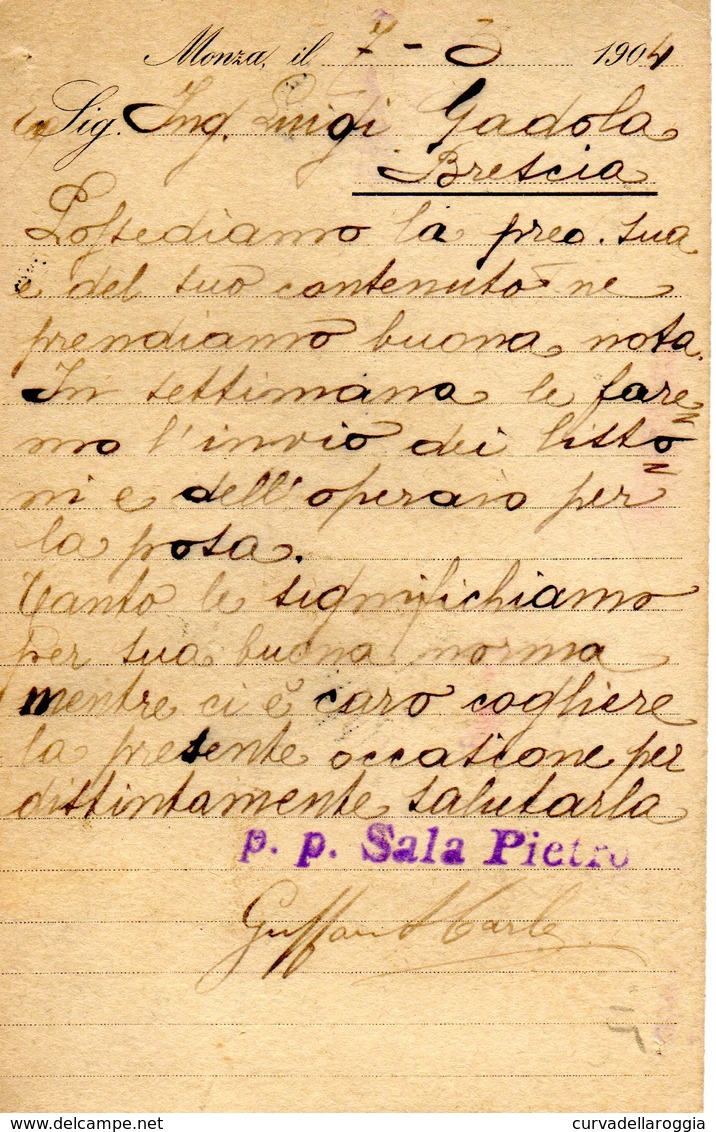 Monza, il 7 - 3 1904
Sig. Ing. Luigi Gadola
Brescia
Possediamo la preg. sua
e del suo contenuto ne
prendiamo buona nota.
In settimana le fare
mo l'invio dei listo
ni e dell'operaio per
la posa.
Tanto le significhiamo
per sua buona norma
mentre ci è caro cogliere
la presente occasione per
distintamente salutarla
p. p. Sala Pietro
curvadellaroggia